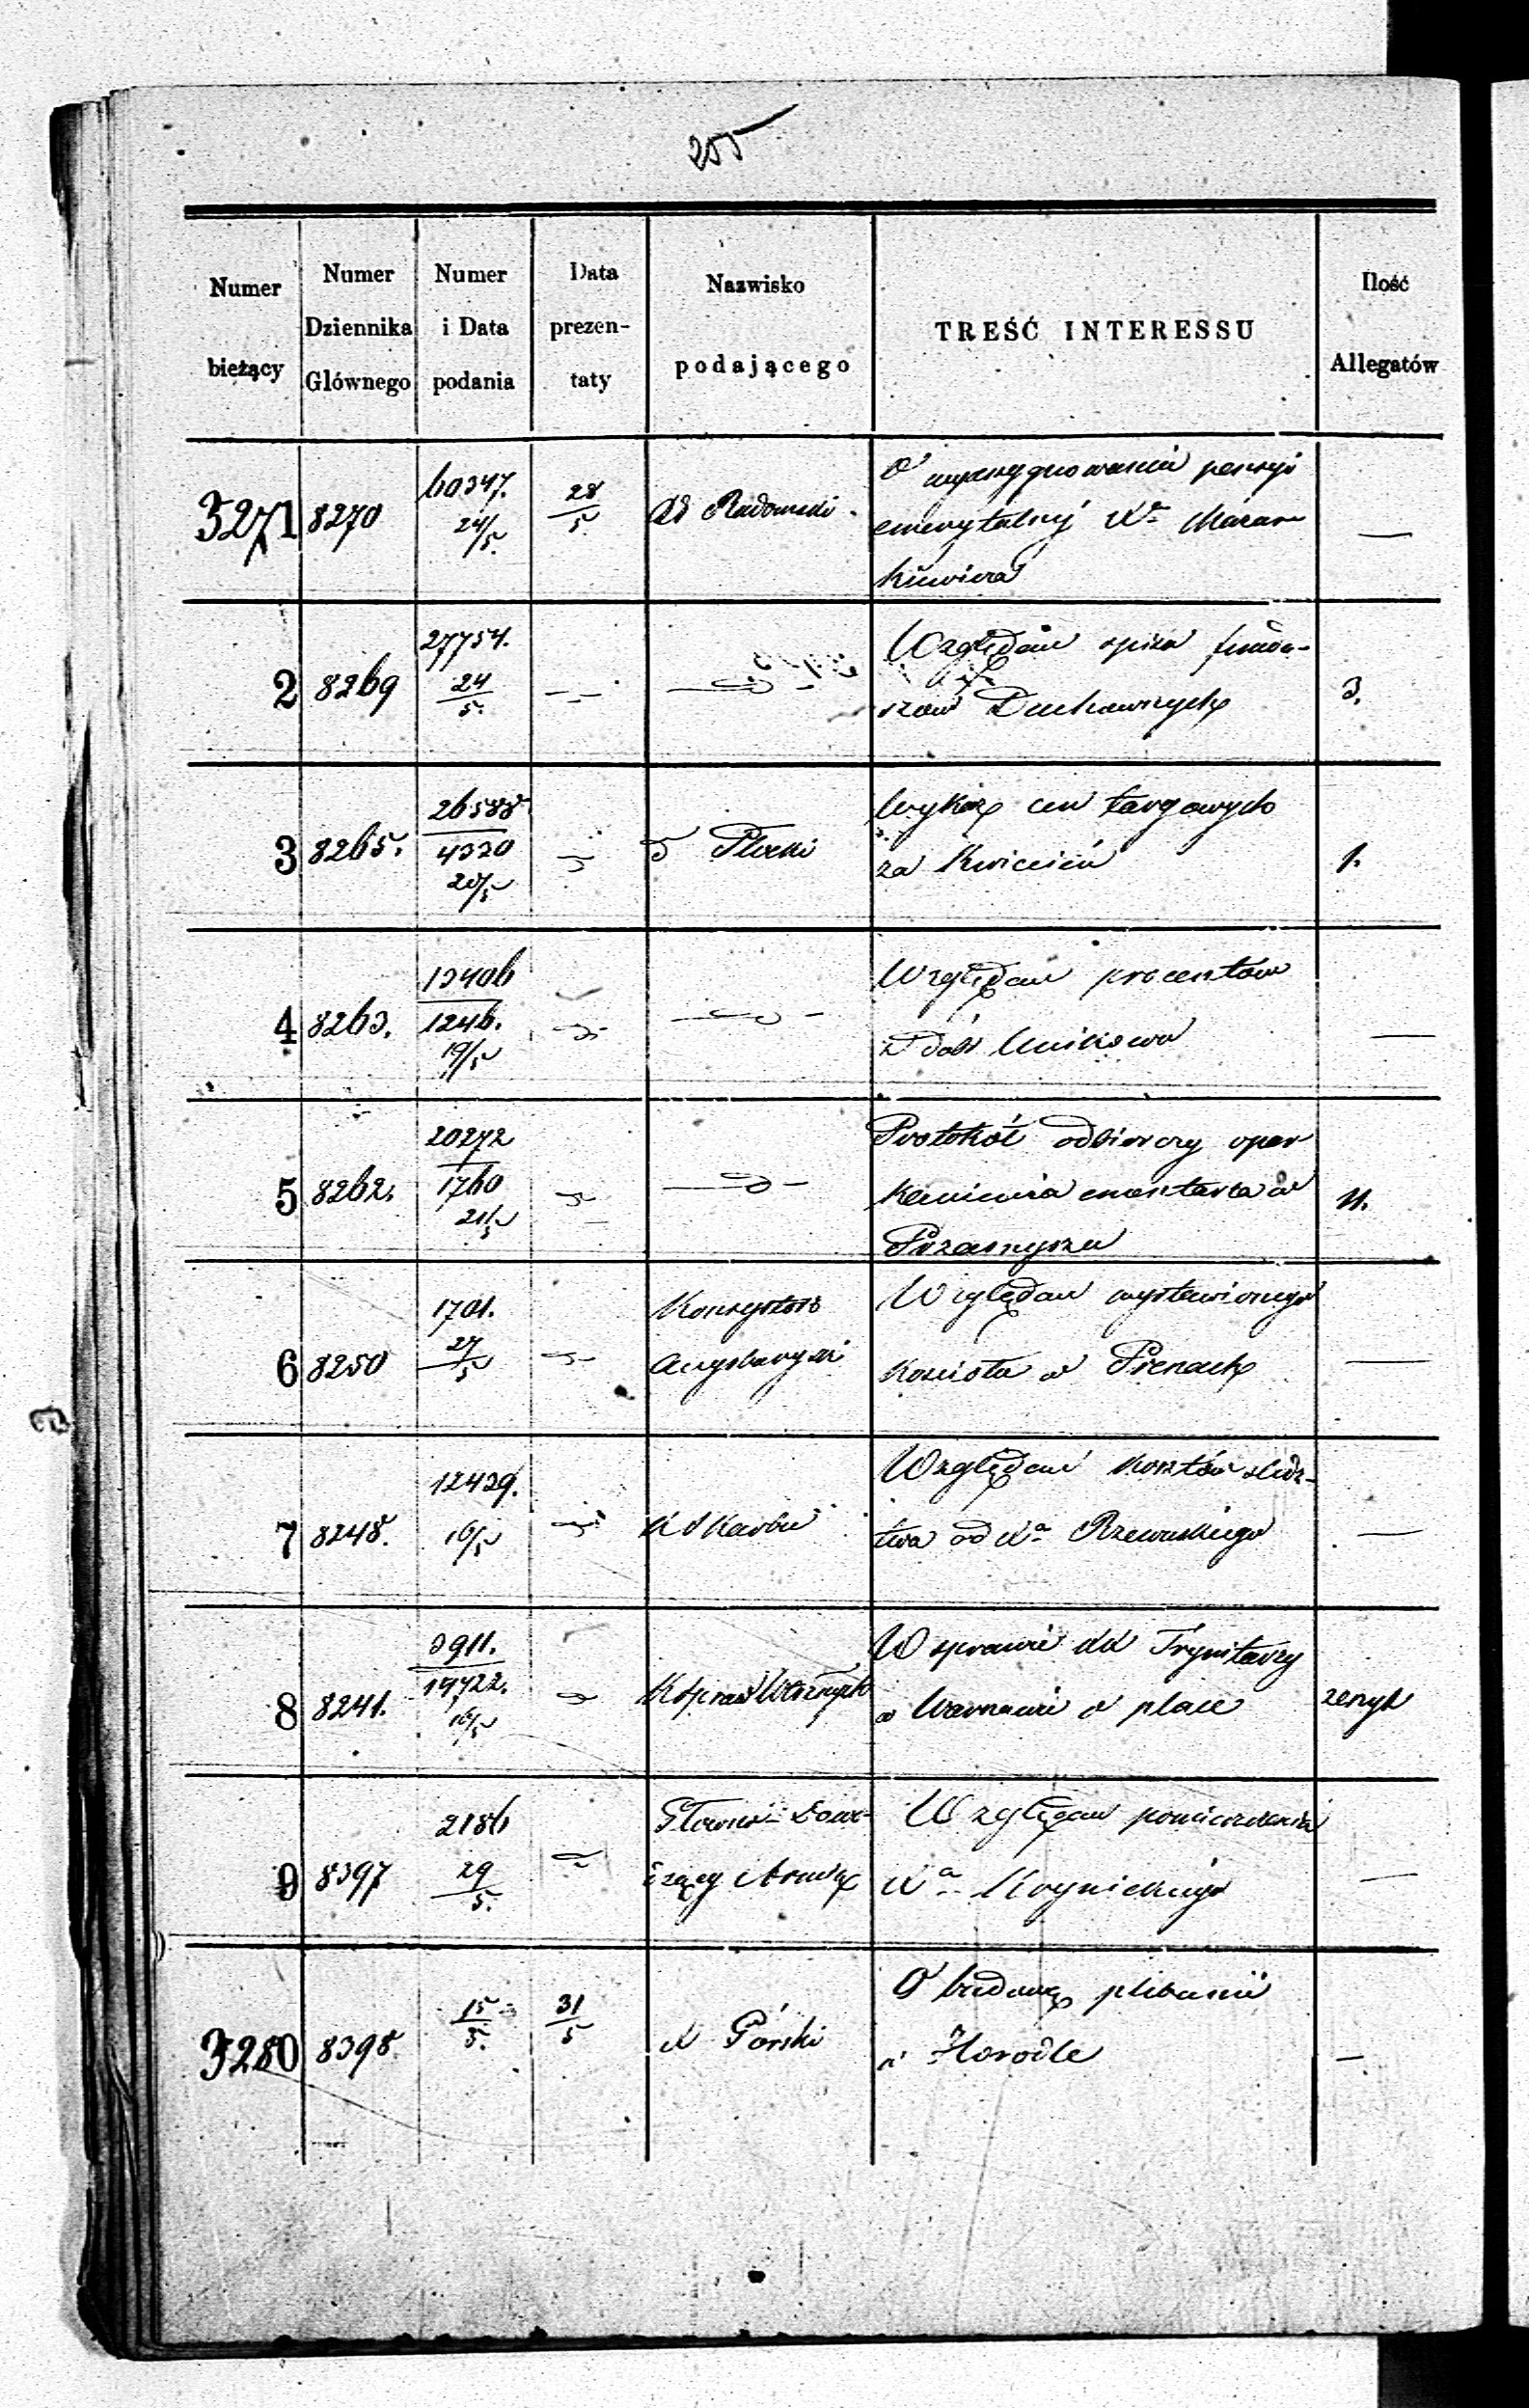 255
Numer bieżący | Numer Dziennika Głównego | Numer i Data podania | Data prezentaty | Nazwisko podającego | TREŚĆ INTERESSU | Ilość Allegatów
3271 8270 60347. 24/5. 28/5 Radomski O wyasygnowanie pensyi
emerytalnej Xa Mazar
kiewicza
2 8269 27754. 24/5. Względem spisu fundu-
szów Duchownych 3.
3 8265. 26588 4320 20/5 Płocki Wykaz cen targowych
za Kwiecień 1.
4 8263. 13406 1246. 19/5 Względem procentów
z dóbr —
5 8262. 20272 1760 21/5 Protokół odbiorczy opar
kanienia cmentarza w 11.
Przasnyszu
6 8250 1701. 27/5 Konsystorz Względem wystawionego
Augsburgski Kościoła w Prenach —
7 8248. 12439. 16/5 K Skarbu Względem kosztów śledz-
twa od Xa Rzewuskiego —
8 8241. 3911. 14722. 16/5 W sprawie XX Trynitarzy
w Warszawie o place zeszyt
9 8397 2186 29/5. Główno-Dowo- Względem pomieszczenia
dzący Armią Xa Krynickiego —
3280 8398 15/5. 31/5 X Górski O budowę plebanii
w Horodle —